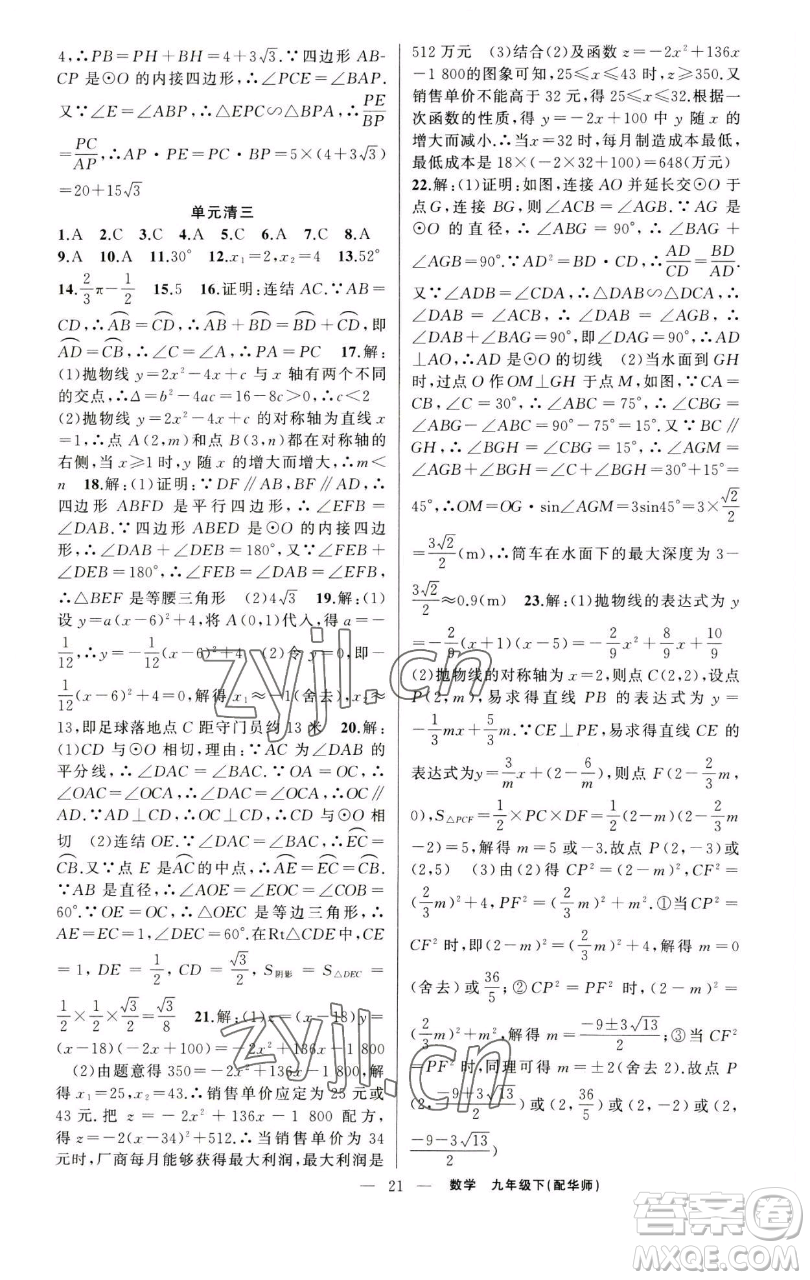 4,∴PB=PH+BH=4+3√3.∵四边形 AB-
CP 是⊙O 的内接四边形,∴∠PCE=∠BAP.
又∵∠E=∠ABP,∴△EPC∽△BPA,∴PE/BP
=PC/AP,∴AP·PE=PC·BP=5×(4+3√3)
=20+15√3
单元清三
1.A 2.C 3.C 4.A 5.C 6.A 7.C 8.A
9.A 10.A 11.30° 12.x₁=2,x₂=4 13.52°
14.2/3π-1/2 15.5 16.证明:连结 AC.∵AB=
CD,∴AB⌒=CD⌒,∴AB⌒+BD⌒=BD⌒+CD⌒,即
AD⌒=CB⌒,∴∠C=∠A,∴PA=PC 17.解:
(1)抛物线 y=2x²-4x+c 与 x 轴有两个不同
的交点,∴Δ=b²-4ac=16-8c>0,∴c<2
(2)抛物线 y=2x²-4x+c 的对称轴为直线 x
=1,∴点 A(2,m)和点 B(3,n)都在对称轴的
右侧,当 x≥1 时,y 随 x 的增大而增大,∴m<
n 18.解:(1)证明:∵DF∥AB,BF∥AD,∴
四边形 ABFD 是平行四边形,∴∠EFB=
∠DAB.∵四边形 ABED 是⊙O 的内接四边
形,∴∠DAB+∠DEB=180°,又∵∠FEB+
∠DEB=180°,∴∠FEB=∠DAB=∠EFB,
∴△BEF 是等腰三角形 (2)4√3 19.解:(1)
设 y=a(x-6)²+4,将 A(0,1)代入,得 a=-
1/12,∴y=-1/12(x-6)²+4 (2)令 y=0,-
1/12(x-6)²+4=0,解得 x₁≈-1(舍去),x₂≈
13,即足球落地点 C 距守门员约 13 米 20.解:
(1)CD 与⊙O 相切,理由:∵AC 为∠DAB 的
平分线,∴∠DAC=∠BAC.∵OA=OC,∴
∠OAC=∠OCA,∴∠DAC=∠OCA,∴OC∥
AD.∵AD⊥CD,∴OC⊥CD,∴CD 与⊙O 相
切 (2)连结 OE.∵∠DAC=∠BAC,∴EC⌒=
CB⌒.又∵点 E 是AC⌒的中点,∴AE⌒=EC⌒=CB⌒.
∵AB 是直径,∴∠AOE=∠EOC=∠COB=
60°.∵OE=OC,∴△OEC 是等边三角形,∴
AE=EC=1,∠DEC=60°.在Rt△CDE中,CE
=1,DE=1/2,CD=√3/2,S阴影=S△DEC=
1/2×1/2×√3/2=√3/8 21.解:(1)z=(x-18)y=
(x-18)(-2x+100)=-2x²+136x-1 800
(2)由题意得 350=-2x²+136x-1 800,解
得 x₁=25,x₂=43.∴销售单价应定为 25 元或
43 元.把 z=-2x²+136x-1 800 配方,
得 z=-2(x-34)²+512.∴当销售单价为 34
元时,厂商每月能够获得最大利润,最大利润是
512 万元 (3)结合(2)及函数 z=-2x²+136x
-1 800 的图象可知,25≤x≤43 时,z≥350.又
销售单价不能高于 32 元,得 25≤x≤32.根据一
次函数的性质,得 y=-2x+100 中 y 随 x 的
增大而减小.∴当 x=32 时,每月制造成本最低,
最低成本是 18×(-2×32+100)=648(万元)
22.解:(1)证明:如图,连接 AO 并延长交⊙O 于
点 G,连接 BG,则∠ACB=∠AGB.∵AG 是
⊙O 的直径,∴∠ABG=90°,∴∠BAG+
∠AGB=90°.∵AD²=BD·CD,∴AD/CD=BD/AD.
又∵∠ADB=∠CDA,∴△DAB∽△DCA,∴
∠DAB=∠ACB=∠AGB,∴∠DAB+
∠BAG=90°,即∠DAG=90°,∴AD
⊥AO,∴AD 是⊙O 的切线 (2)当水面到 GH
时,过点 O 作 OM⊥GH 于点 M,如图.∵CA=
CB,∠C=30°,∴∠ABC=75°,∴∠CBG=
∠ABG-∠ABC=90°-75°=15°.又∵BC∥
GH,∴∠BGH=∠CBG=15°,∴∠AGM=
∠AGB-∠BGH=∠ACB+∠BGH=
45°,∴OM=OG·sin∠AGM=3sin45°=3×√2/2
=3√2/2(m),∴筒车在水面下的最大深度为 3-
3√2/2≈0.9(m) 23.解:(1)抛物线的表达式为 y
=-2/9(x+1)(x-5)=-2/9x²+8/9x+10/9
(2)抛物线的对称轴为 x=2,则点 C(2,2),设点
P(2,m),易求得直线 PB 的表达式为 y=
-1/3mx+5/3m.∵CE⊥PE,易求得直线 CE 的
表达式为y=3/m x+(2-6/m),则点 F(2-2/3m,
0),S△PCF=1/2×PC×DF=1/2(2-m)(2-2/3m
-2)=5,解得 m=5 或-3.故点 P(2,-3)或
(2,5) (3)由(2)得 CP²=(2-m)²,CF²=
(2/3m)²+4,PF²=(2/3m)²+m².①当 CP²=
CF² 时,即(2-m)²=(2/3m)²+4,解得 m=0
(舍去)或36/5;②当 CP²=PF² 时,(2-m)²=
(2/3m)²+m²,解得 m=(-9±3√13)/2;③当 CF²
=PF² 时,同理可得 m=±2(舍去 2).故点 P
(2,(-9+3√13)/2)或(2,36/5)或(2,-2)或(2,
(-9-3√13)/2)
— 21 — 数学 九年级下(配华师)
zyjl.cn
zyjl.cn
答案圈
MXQE.COM